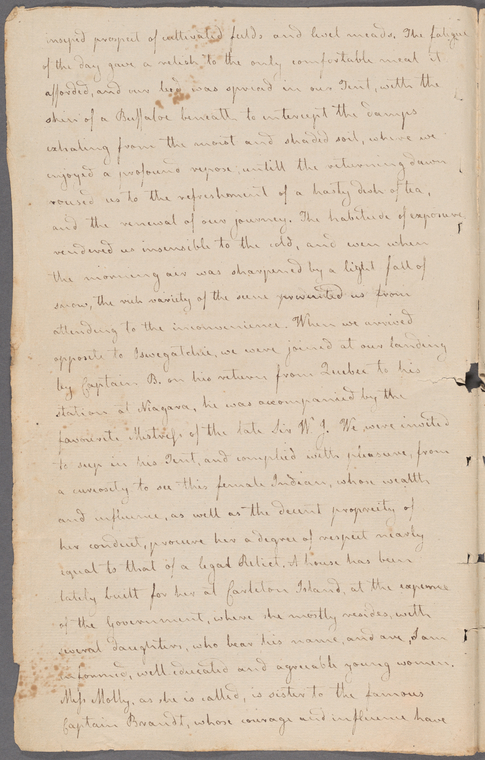 insipid prospect of cultivated fields and level meads. The fatigue
of the day gave a relish to the only comfortable meal it
afforded, and our bed was spread in our Tent, with the
skin of a Buffaloe beneath to intercept the damps
exhaling from the moist and shaded soil, where we
enjoyed a profound repose, untill the returning dawn
roused us to the refreshment of a hasty dish of tea,
and the renewal of our journey. The habitude of exposure
rendered us insensible to the cold, and even when
the morning air was sharpened by a light fall of
snow, the rich variety of the scene prevented us from
attending to the inconvenience. When we arrived
opposite to Iswegatchie, we were joined at our landing
by Captain B. on his return from Quebec to his
station at Niagara, he was accompanied by the
favourite Mistress of the late Sir W J. We were invited
to sup in his Tent, and complied with pleasure, from
a curiosity to see this female Indian, whose wealth
and influence, as well as the decent propriety of
her conduct, procure her a degree of respect nearly
equal to that of a legal Relict. A house has been
lately built for her at Carleton Island, at the expence
of the Government, where she mostly resides, with
several daughters, who bear his name, and are, I am
informed, well educated and agreable young women.
Miss Molly, as she is called, is sister to the famous
Captain Brandt, whose courage and influence have